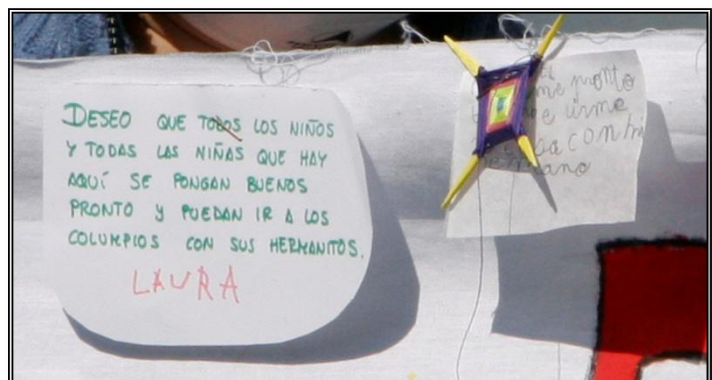 DESEO QUE TODOS LOS NIÑOS
Y TODAS LAS NIÑAS QUE HAY
AQUÍ SE PONGAN BUENOS
PRONTO Y PUEDAN IR A LOS
COLUMPIOS CON SUS HERMANITOS.
LAURA
me pronto
irme
con mi